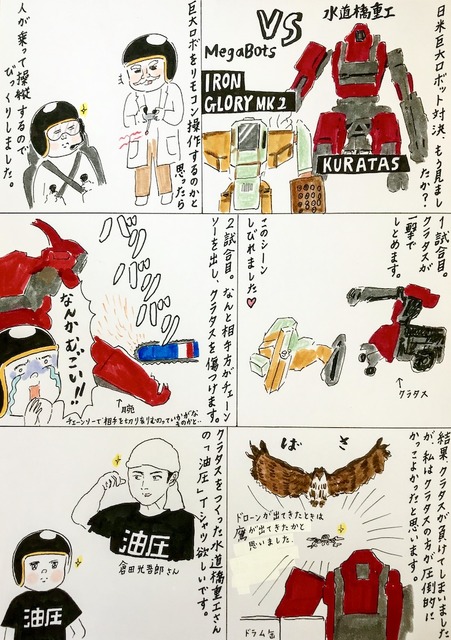 日米巨大ロボット対決、もう見まし
たか？
水道橋重工
VS
MegaBots
IRON
GLORY MK2
KURATAS
巨大ロボをリモコン操作するのかと
思ったら
人が乗って操縦するので
びっくりしました。
1試合目。
クラタスが
一撃で
しとめます。
このシーン
しびれました♥
↑クラタス
2試合目。なんと相手方がチェーン
ソーを出し、クラタスを傷つけます。
バッバッ
バババッ
なんかむごい!!
↑腕
チェーンソーで相手を切り刻むのっていかがな
ものかと…
結果クラタスが負けてしまいました
が、私はクラタスの方が圧倒的に
かっこよかったと思います。
ばさ
ドローンが出てきたときは
鷹が出てきたかと
思いました。
ドラム缶
クラタスをつくった水道橋重工さん
の「油圧」Tシャツ欲しいです。
油圧
倉田光吾郎さん
油圧